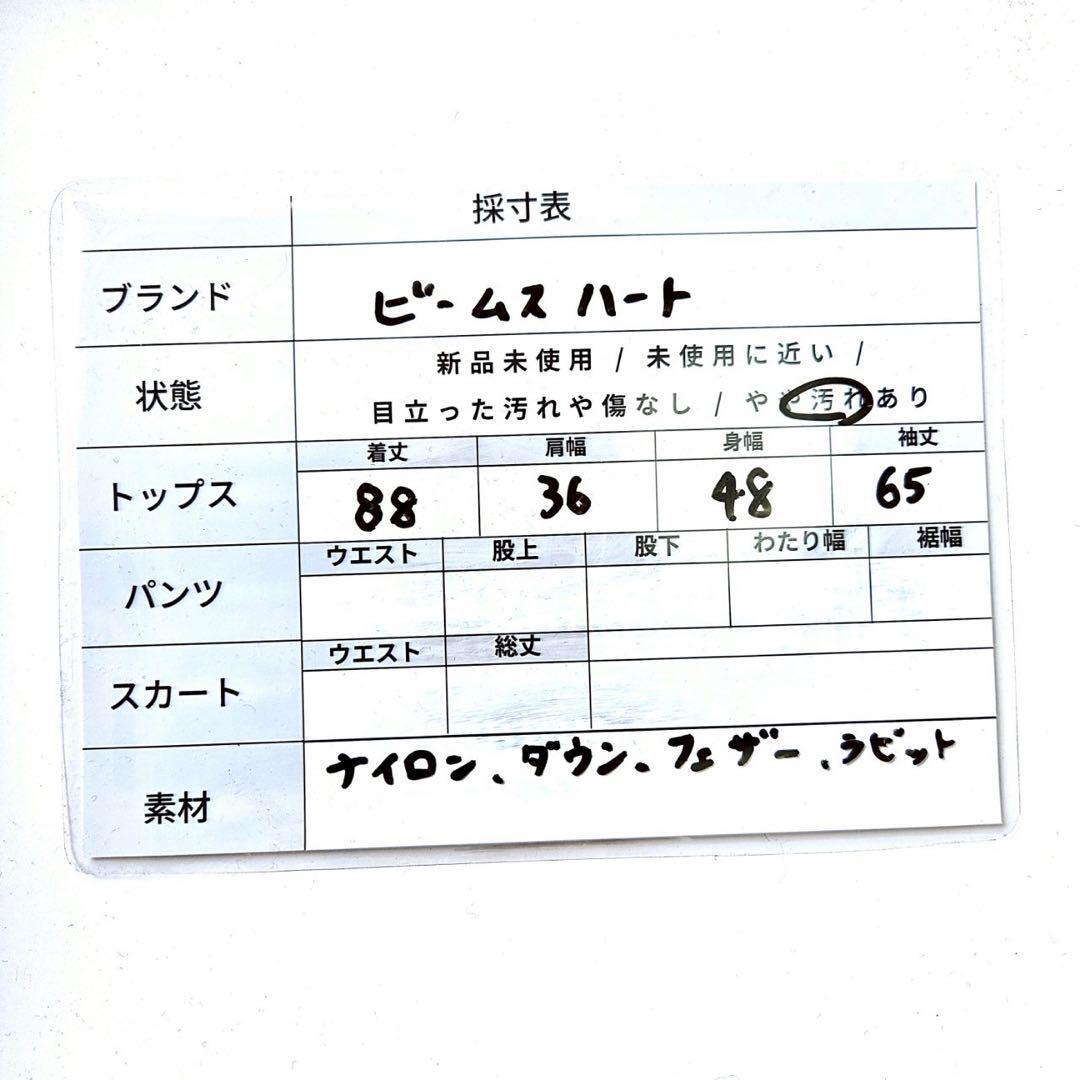 採寸表
ブランド ビームス ハート
状態 新品未使用 / 未使用に近い /
目立った汚れや傷なし / やや汚れあり
着丈 肩幅 身幅 袖丈
トップス 88 36 48 65
ウエスト 股上 股下 わたり幅 裾幅
パンツ
ウエスト 総丈
スカート
素材 ナイロン、ダウン、フェザー、ラビット